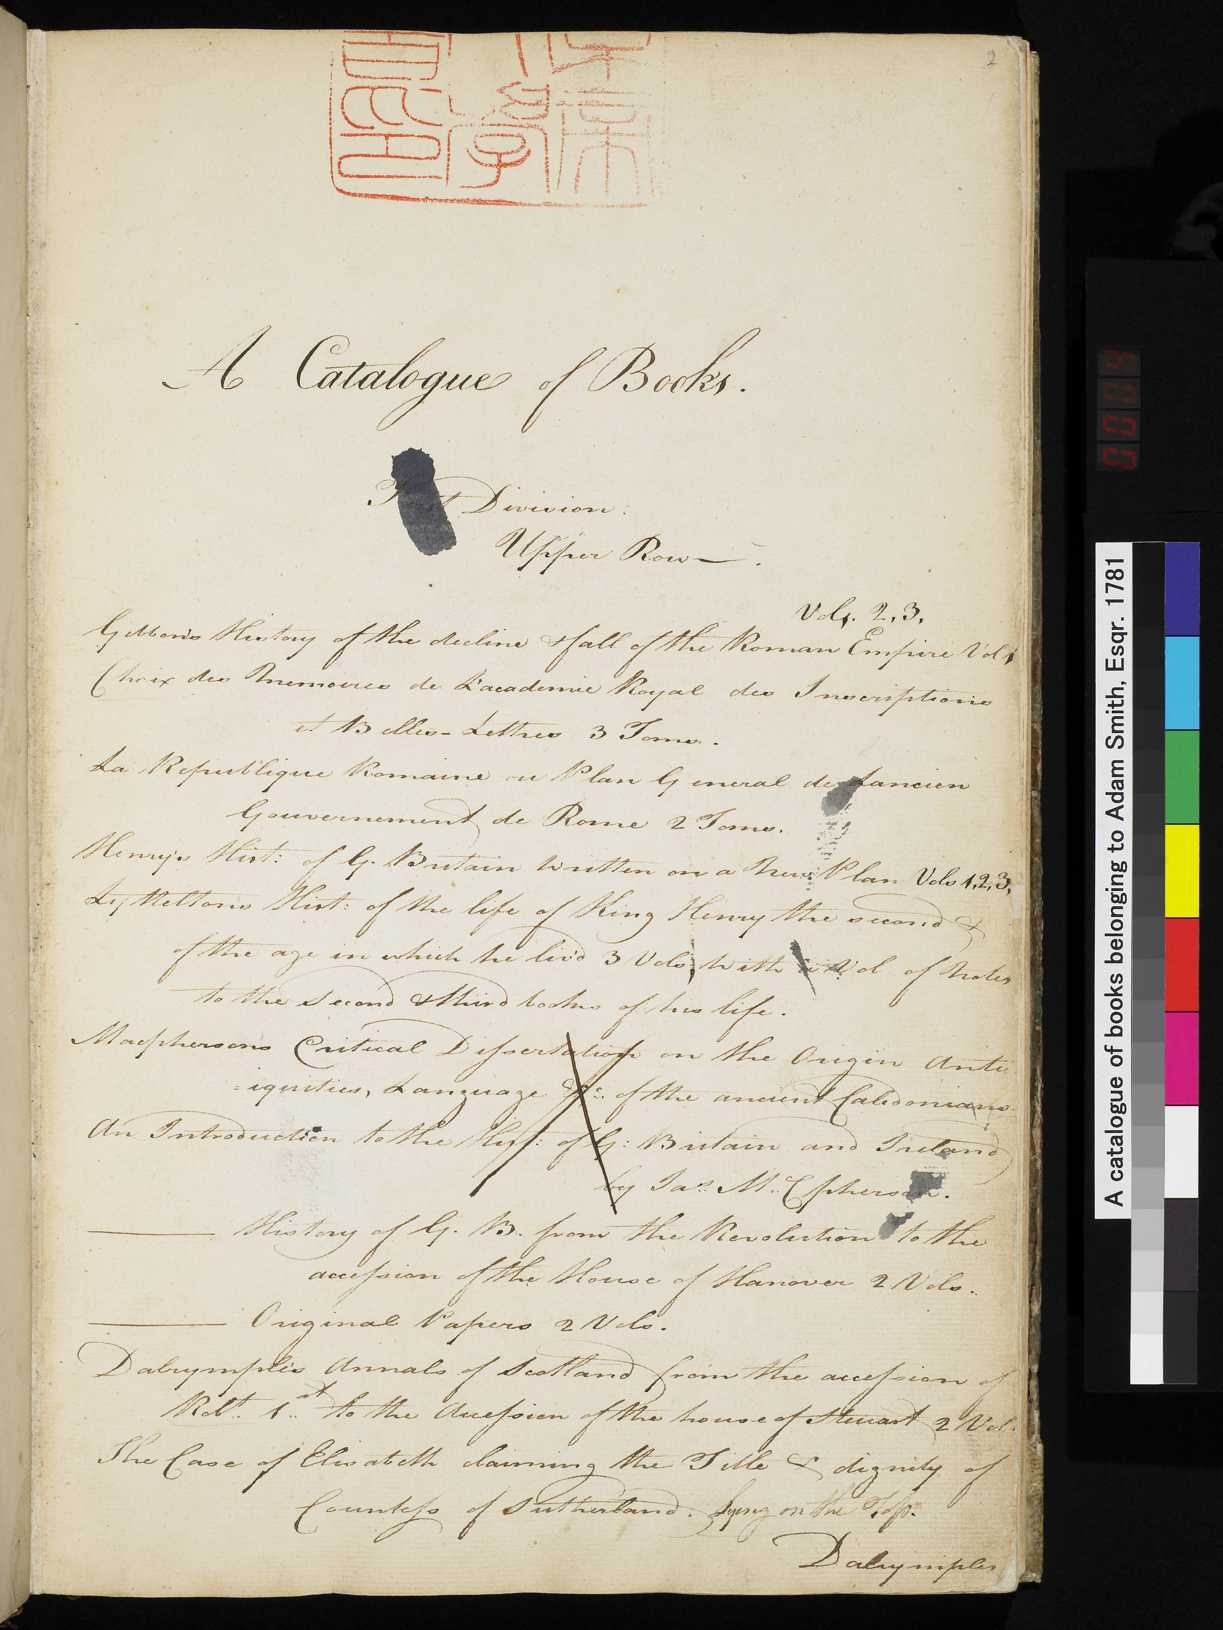 2
A Catalogue of Books.
Division.
Upper Row —.
Vols. 2, 3.
Gibbon's History of the decline & fall of the Roman Empire Vol 1
Choix des Memoires de L'academie Royal des Inscriptions
et Belles-Lettres 3 Toms.
La Republique Romaine ou Plan General de l'ancien
Gouvernement de Rome 2 Toms.
Henry's Hist: of G. Britain written on a New Plan Vols 1, 2, 3,
Lyttelton's Hist: of the life of King Henry the second &
of the age in which he liv'd 3 Vols, with a Vol of Notes
to the second & third books of his life.
Macphersons Critical Dissertation on the Origin Anti
=iquities, Language &c. of the ancient Caledonians
An Introduction to the Hist: of G: Britain and Ireland
by Jas. McPherson.
——— History of G. B. from the Revolution to the
accession of the House of Hanover 2 Vols.
——— Original Papers 2 Vols.
Dalrymples Annals of Scotland from the accession of
Robt. 1st to the Accession of the house of Stewart 2 Vol.
The Case of Elisabeth claiming the Title & dignity of
Countess of Sutherland. Lying on the Top.
Dalrymples
A catalogue of books belonging to Adam Smith, Esqr. 1781
0004